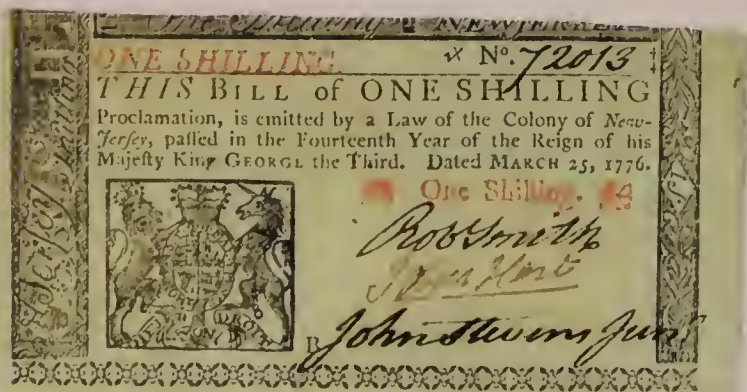 NEW JERSEY
ONE SHILLING № 72013
THIS BILL of ONE SHILLING
Proclamation, is emitted by a Law of the Colony of New-
Jersey, paſſed in the Fourteenth Year of the Reign of his
Majeſty King GEORGE the Third. Dated MARCH 25, 1776.
One Shilling.
Rob Smith
John Hart
John Stevens Junr
DROIT
Jerſey